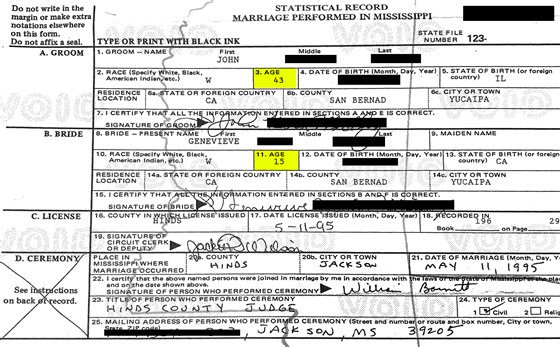 Do not write in the
margin or make extra
notations elsewhere
on this form.
Do not affix a seal.
STATISTICAL RECORD
MARRIAGE PERFORMED IN MISSISSIPPI
TYPE OR PRINT WITH BLACK INK
STATE FILE
NUMBER 123-
A. GROOM
1. GROOM - NAME First Middle Last
JOHN
2. RACE (Specify White, Black, American Indian, etc.) W
3. AGE 43
4. DATE OF BIRTH (Month, Day, Year)
5. STATE OF BIRTH (or foreign country) IL
RESIDENCE LOCATION
6a. STATE OR FOREIGN COUNTRY CA
6b. COUNTY SAN BERNAD
6c. CITY OR TOWN YUCAIPA
7. I CERTIFY THAT ALL THE INFORMATION ENTERED IN SECTIONS A AND E IS CORRECT.
SIGNATURE OF GROOM John
B. BRIDE
8. BRIDE - PRESENT NAME First Middle Last
GENEVIEVE
9. MAIDEN NAME
10. RACE (Specify White, Black, American Indian, etc.) W
11. AGE 15
12. DATE OF BIRTH (Month, Day, Year)
13. STATE OF BIRTH (or foreign country) CA
RESIDENCE LOCATION
14a. STATE OR FOREIGN COUNTRY CA
14b. COUNTY SAN BERNAD
14c. CITY OR TOWN YUCAIPA
15. I CERTIFY THAT ALL THE INFORMATION ENTERED IN SECTIONS B AND E IS CORRECT.
SIGNATURE OF BRIDE
C. LICENSE
16. COUNTY IN WHICH LICENSE ISSUED HINDS
17. DATE LICENSE ISSUED (Month, Day, Year) 5-11-95
18. RECORDED IN
Book 196 on Page 29
19. SIGNATURE OF CIRCUIT CLERK OR DEPUTY
D. CEREMONY
See instructions
on back of record.
PLACE IN MISSISSIPPI WHERE MARRIAGE OCCURRED
20a. COUNTY HINDS
20b. CITY OR TOWN JACKSON
21. DATE OF MARRIAGE (Month, Day, Year) MAY 11, 1995
22. I certify that the above named persons were joined in marriage by me in accordance with the laws of the State of Mississippi at the
and on the date shown above.
SIGNATURE OF PERSON WHO PERFORMED CEREMONY William Barnett
23. TITLE OF PERSON WHO PERFORMED CEREMONY
HINDS COUNTY JUDGE
24. TYPE OF CEREMONY
1 Civil 2
25. MAILING ADDRESS OF PERSON WHO PERFORMED CEREMONY (Street and number or route and box number, City or town,
State, ZIP code)
JACKSON, MS 39205